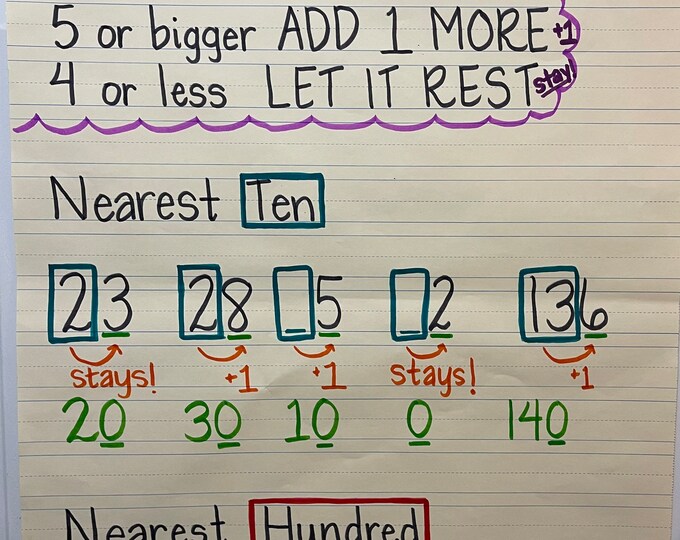 5 or bigger ADD 1 MORE +1
4 or less LET IT REST stay!
Nearest Ten
23 28 _5 _2 136
stays! +1 +1 stays! +1
20 30 10 0 140
Nearest Hundred